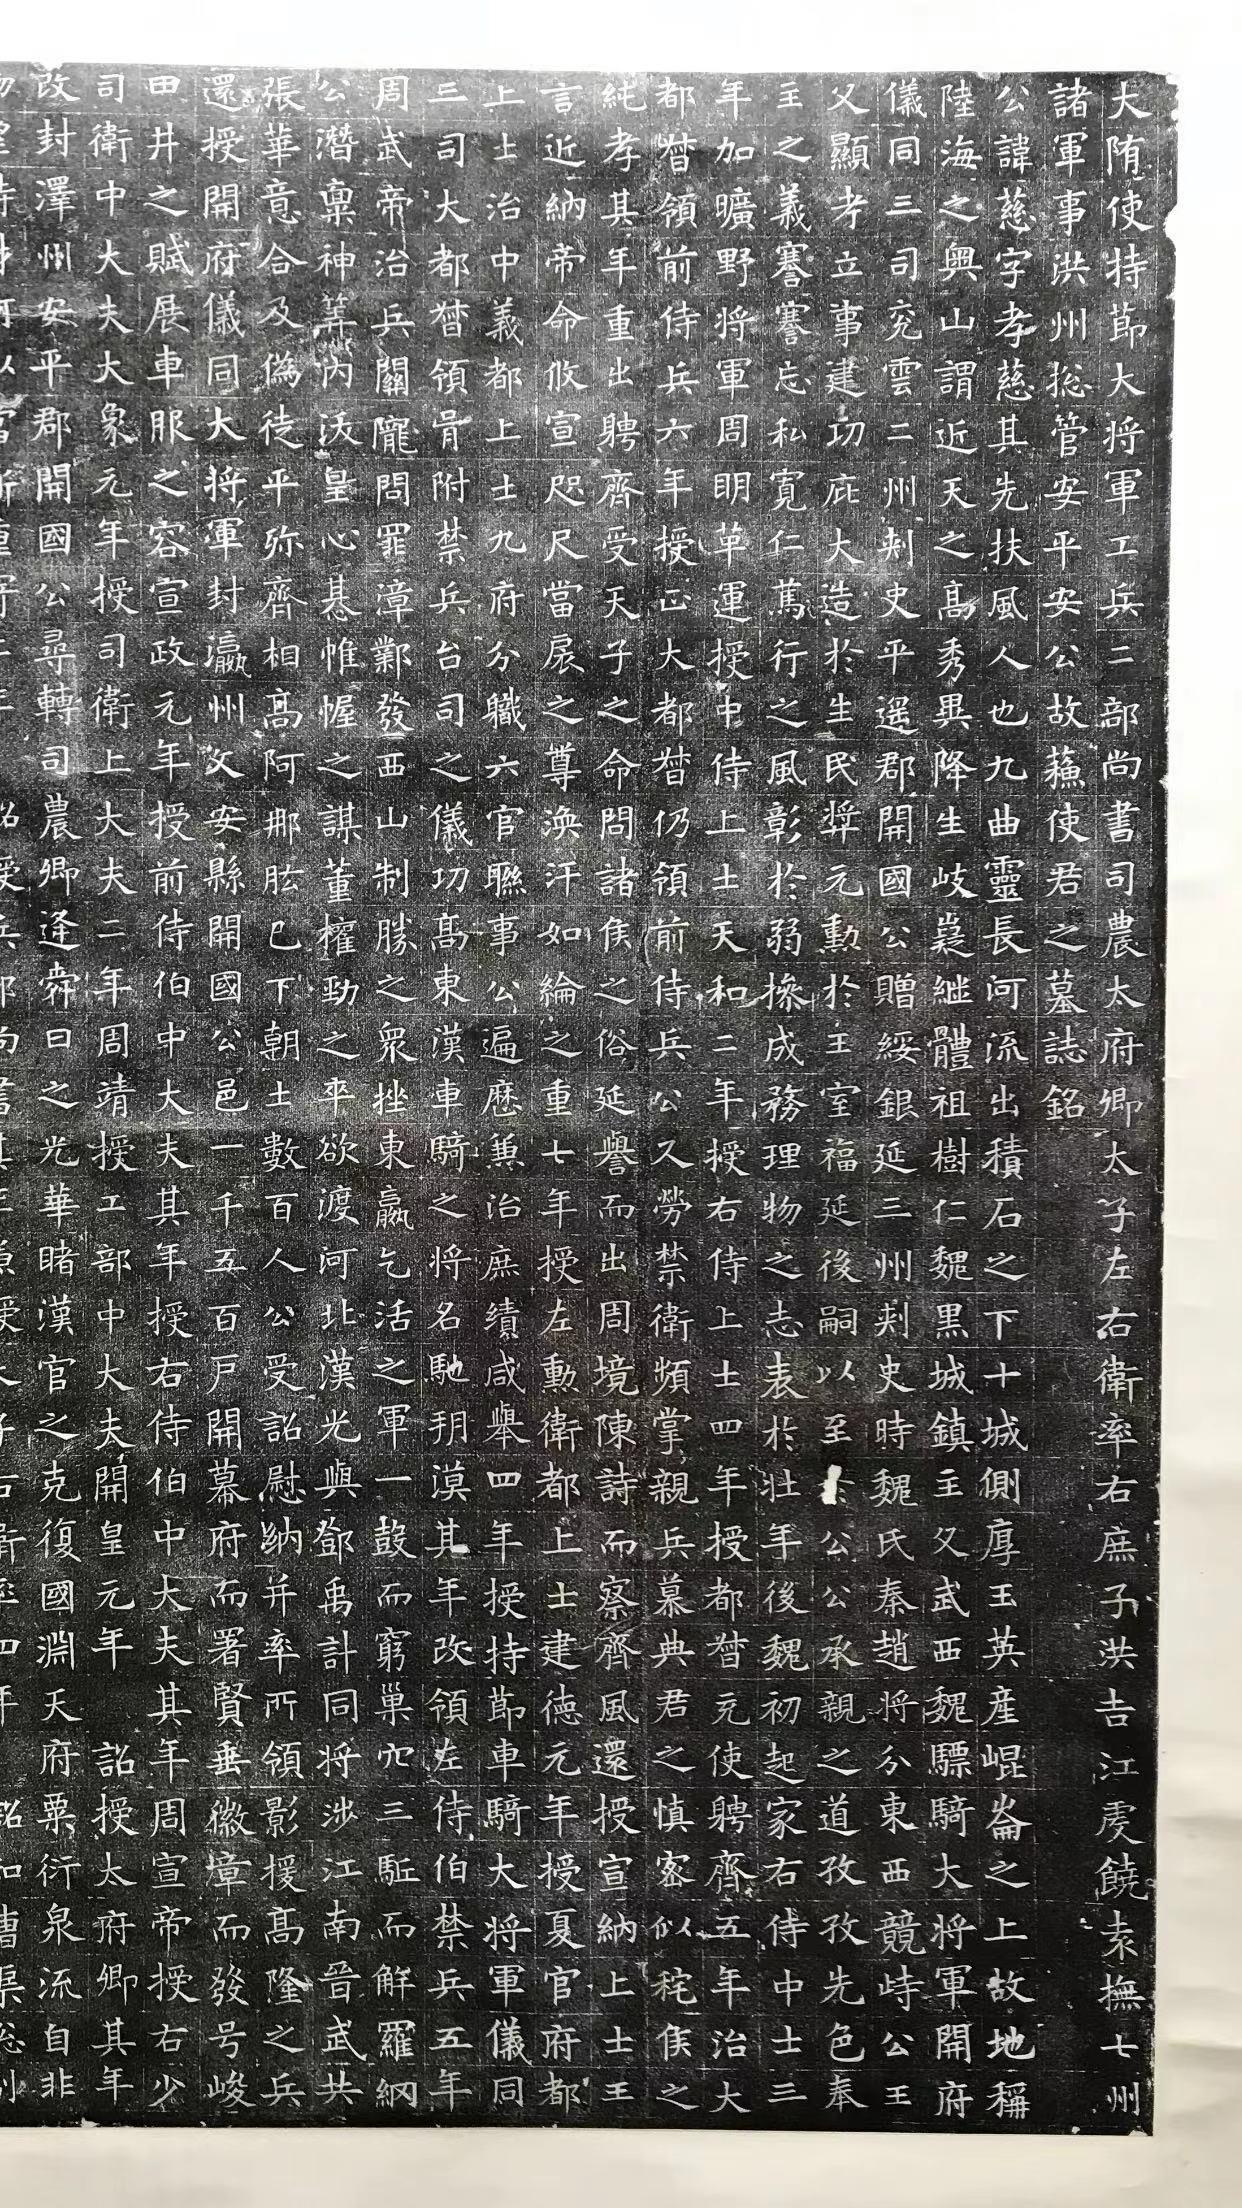 大隋使持節大將軍工兵二部尚書司農太府卿太子左右衛率右庶子洪吉江虔饒袁撫七州
諸軍事洪州揔管安平安公故蘓使君之墓誌銘
公諱慈字孝慈其先扶風人也九曲靈長河流出積石之下十城側厚玉英産崐崙之上故地稱
陸海之奧山謂近天之髙秀異降生岐嶷継體祖樹仁魏黒城鎮主父武西魏驃騎大将軍開府
儀同三司兖雲二州刾史平遥郡開國公贈綏銀延三州刾史時魏氏秦趙将分東西競峙公王
父顯考立事建功庇大造於生民奬元勳於王室福延後嗣以至於公公承親之道孜孜先色奉
主之義謇謇忘私寛仁篤行之風彰於弱操成務理物之志表於壮年後魏初起家右侍中士三
年加曠野将軍周明革運授中侍上士天和二年授右侍上士四年授都督充使聘齊五年治大
都督領前侍兵六年授正大都督仍領前侍兵公久勞禁衛頻掌親兵慕典君之慎密似秺侯之
純孝其年重出聘齊受天子之命問諸侯之俗延譽而出周境陳詩而察齊風還授宣納上士王
言近納帝命攸宣咫尺當扆之尊渙汗如綸之重七年授左勳衛都上士建德元年授夏官府都
上士治中義都上士九府分職六官聯事公遍歴兼治庶績咸舉四年授持節車騎大将軍儀同
三司大都督領胥附禁兵台司之儀功髙東漢車騎之将名馳朔漠其年改領左侍伯禁兵五年
周武帝治兵關隴問罪漳鄴發西山制勝之衆挫東嬴乞活之軍一鼓而窮巢穴三駈而解羅網
公潛稟神筭內沃皇心基帷幄之謀董權勁之卒欲渡河北漢光與鄧禹計同将涉江南晉武共
張華意合及偽徒平弥齊相髙阿那肱已下朝士數百人公受詔慰納并率所領影援髙隆之兵
還授開府儀同大将軍封瀛州文安縣開國公邑一千五百戸開幕府而署賢垂徽章而發号峻
田井之賦展車服之容宣政元年授前侍伯中大夫其年授右侍伯中大夫其年周宣帝授右少
司衛中大夫大象元年授司衛上大夫二年周靖授工部中大夫開皇元年詔授太府卿其年
改封澤州安平郡開國公尋轉司農卿逢舜日之光華睹漢官之克復國淵天府粟衍泉流自非